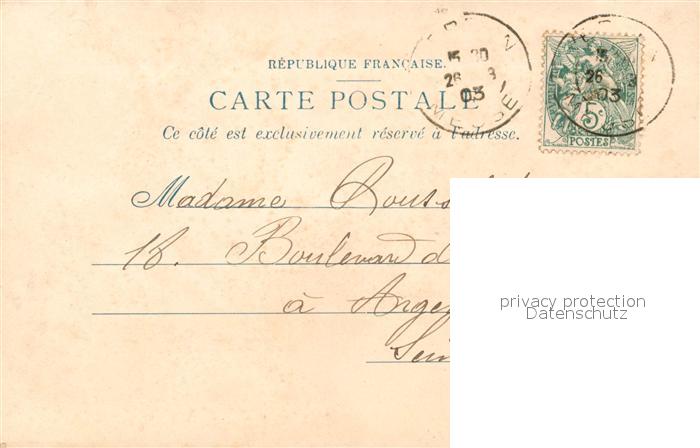 RÉPUBLIQUE FRANÇAISE.
CARTE POSTALE
Ce côté est exclusivement réservé à l'adresse.
15 30
26 3
03
MEUSE
15
26 3
03
5c
POSTES
Madame
18. Boulevard d
à Arge
Sein
privacy protection
Datenschutz